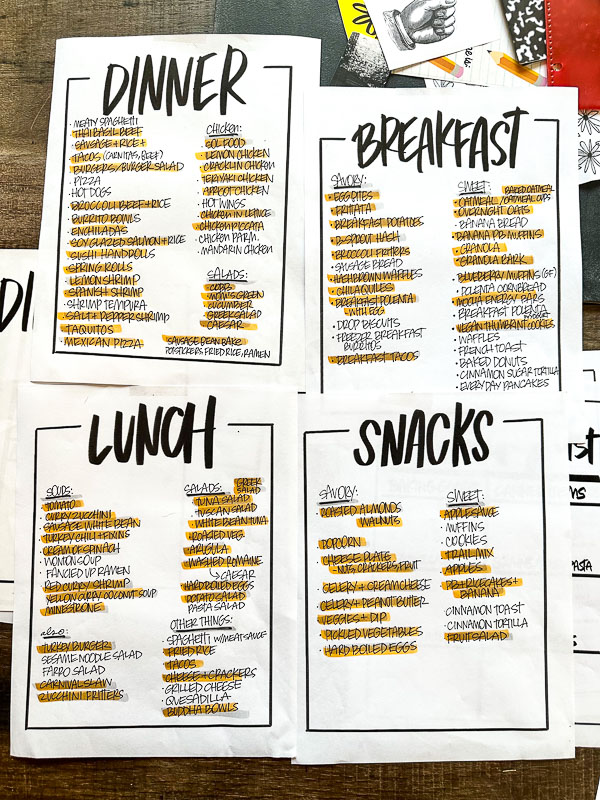 DINNER
MEATY SPAGHETTI
THAI BASIL BEEF
SAUSAGE + RICE +
TACOS (CARNITAS, BEEF)
BURGERS/BURGER SALAD
PIZZA
HOT DOGS
BROCCOLI BEEF + RICE
BURRITO BOWLS
ENCHILADAS
SOY GLAZED SALMON + RICE
SUSHI HANDROLLS
SPRING ROLLS
LEMON SHRIMP
SPANISH SHRIMP
SHRIMP TEMPURA
SALT + PEPPER SHRIMP
TAQUITOS
MEXICAN PIZZA
CHICKEN:
SOL FOOD
LEMON CHICKEN
CRACKLIN CHICKEN
TERIYAKI CHICKEN
APRICOT CHICKEN
HOT WINGS
CHICKEN IN LETTUCE
CHICKEN PICCATA
CHICKEN PARM.
MANDARIN CHICKEN
SALADS:
COBB
MOM'S GREEN
CUCUMBER
GREEK SALAD
CAESAR
SAUSAGE BEAN BAKE
POTSTICKERS, FRIED RICE, RAMEN
BREAKFAST
SAVORY:
EGG BITES
FRITTATA
BREAKFAST POTATOES
B-SPROUT HASH
BROCCOLI FRITTERS
SAUSAGE BREAD
HASHBROWN WAFFLES
CHILAQUILES
BREAKFAST POLENTA
WITH EGG
DROP BISCUITS
FREEZER BREAKFAST
BURRITOS
BREAKFAST TACOS
SWEET:
BAKED OATMEAL
OATMEAL/OATMEAL CUPS
OVERNIGHT OATS
BANANA BREAD
BANANA PB MUFFINS
GRANOLA
GRANOLA BARK
BLUEBERRY MUFFINS (GF)
POLENTA CORNBREAD
MOCHA ENERGY BARS
BREAKFAST POLENTA
VEGAN THUMBPRINT COOKIES
WAFFLES
FRENCH TOAST
BAKED DONUTS
CINNAMON SUGAR TORTILLA
EVERYDAY PANCAKES
LUNCH
SOUPS:
TOMATO
CURRY ZUCCHINI
SAUSAGE WHITE BEAN
TURKEY CHILI + FIXINS
CREAM OF SPINACH
WONTON SOUP
FANCIED UP RAMEN
RED CURRY SHRIMP
YELLOW CURRY COCONUT SOUP
MINESTRONE
also:
TURKEY BURGER
SESAME NOODLE SALAD
FARRO SALAD
CARNIVAL SLAW
ZUCCHINI FRITTERS
SALADS:
GREEK
SALAD
TUNA SALAD
TUSCAN SALAD
WHITE BEAN TUNA
ROASTED VEG.
ARUGULA
WASHED ROMAINE
CAESAR
HARD BOILED EGGS
POTATO SALAD
PASTA SALAD
OTHER THINGS:
SPAGHETTI W/MEAT SAUCE
FRIED RICE
TACOS
CHEESE + CRACKERS
GRILLED CHEESE
QUESADILLA
BUDDHA BOWLS
SNACKS
SAVORY:
ROASTED ALMONDS
WALNUTS
POPCORN
CHEESE PLATE
- NUTS, CRACKERS, FRUIT
CELERY + CREAM CHEESE
CELERY + PEANUT BUTTER
VEGGIES + DIP
PICKLED VEGETABLES
HARD BOILED EGGS
SWEET:
APPLESAUCE
MUFFINS
COOKIES
TRAIL MIX
APPLES
PB + RICECAKES +
BANANA
CINNAMON TOAST
CINNAMON TORTILLA
FRUIT SALAD
DI
ST
MS
PASTA